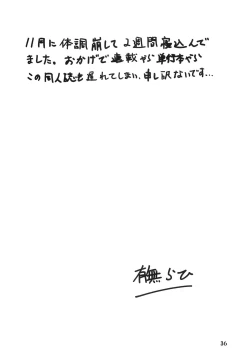 11月に体調崩して2週間寝込んで
ました。おかげで連載やら単行本やら
この同人誌も遅れてしまい、申し訳ないです…
有無らひ
36